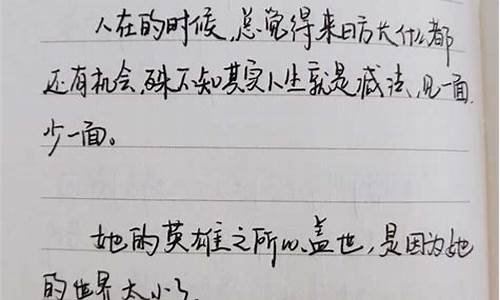 人在的时候,总觉得来日方长什么都
还有机会,殊不知其实人生就是减法,见一面
少一面。
她的英雄之所以盖世,是因为她
的世界太小了.